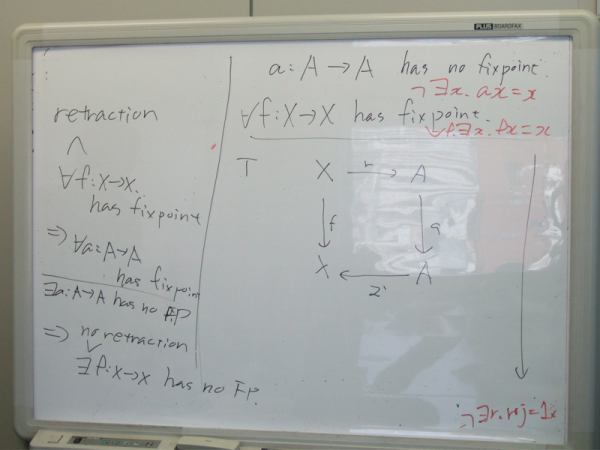 PLUS BOARDFAX
retraction
∧
∀f:X→X.
has fixpoint
⇒ ∀a:A→A
has fixpoint
∃a:A→A has no F.P
⇒ no retraction
∨
∃f:X→X has no F.P.
a:A→A has no fixpoint.
¬∃x. ax=x
∀f:X→X has fixpoint.
∀f.∃x. fx=x
T X r→ A
↓f ↓a
X ←i A
¬∃r. roj=1x